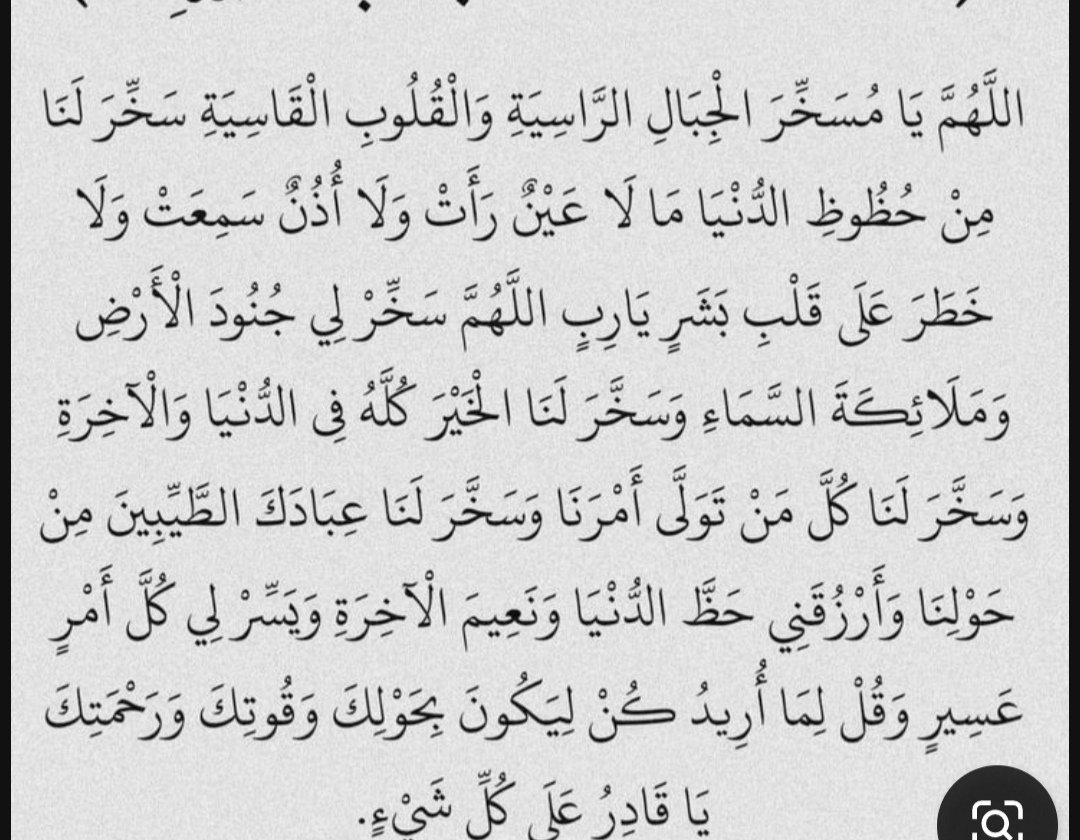 اللَّهُمَّ يَا مُسَخِّرَ الْجِبَالِ الرَّاسِيَةِ وَالْقُلُوبِ الْقَاسِيَةِ سَخِّرَ لَنَا
مِنْ حُظُوظِ الدُّنْيَا مَا لَا عَيْنٌ رَأَتْ وَلَا أُذُنٌ سَمِعَتْ وَلَا
خَطَرَ عَلَى قَلْبِ بَشَرٍ يَارِبٍ اللَّهُمَّ سَخِّرْ لِي جُنُودَ الْأَرْضِ
وَمَلَائِكَةَ السَّمَاءِ وَسَخَّرَ لَنَا الْخَيْرَ كُلَّهُ فِى الدُّنْيَا وَالْآخِرَةِ
وَسَخَّرَ لَنَا كُلَّ مَنْ تَوَلَّى أَمْرَنَا وَسَخَّرَ لَنَا عِبَادَكَ الطَّيِّبِينَ مِنْ
حَوْلِنَا وَأَرْزُقَنِي حَظَّ الدُّنْيَا وَنَعِيمَ الْآخِرَةِ وَيَسِّرْ لِي كُلَّ أَمْرٍ
عَسِيرٍ وَقُلْ لِمَا أُرِيدُ كُنْ لِيَكُونَ بِحَوْلِكَ وَقُوتِكَ وَرَحْمَتِكَ
يَا قَادِرُ عَلَى كُلِّ شَيْءٍ.